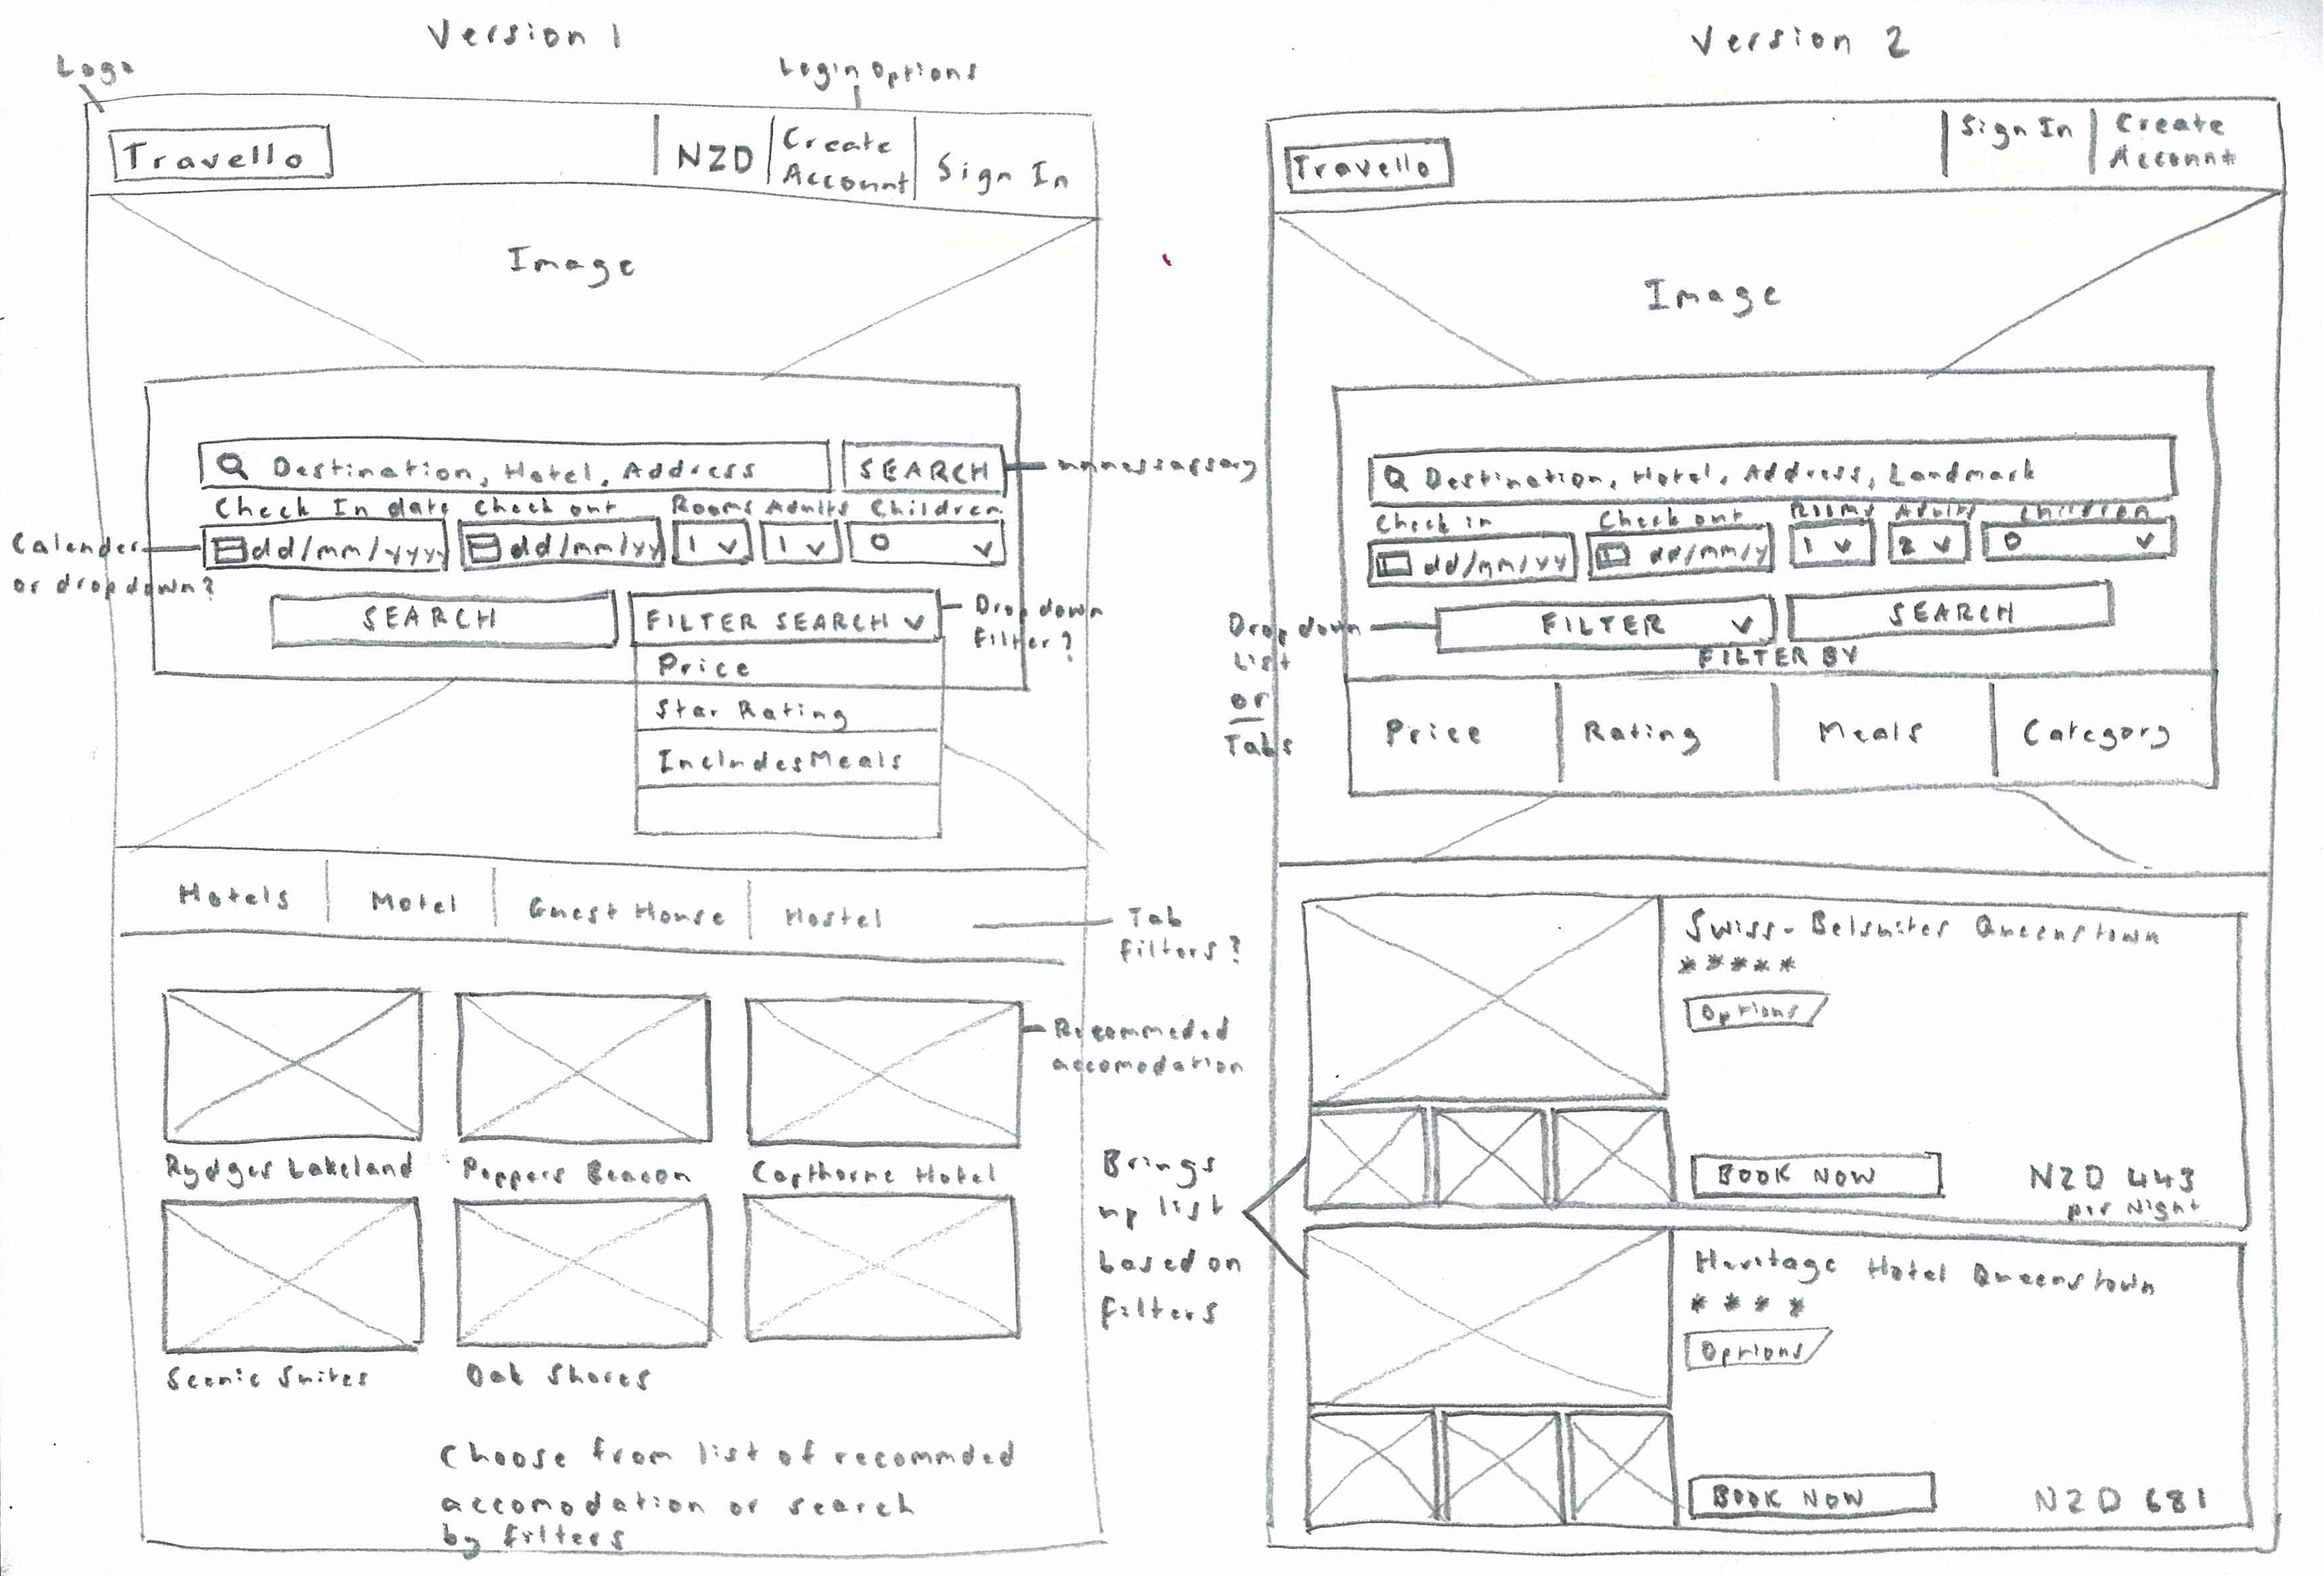 Version 1
Logo
Login Options
Travello
NZD
Create
Account
Sign In
Image
Destination, Hotel, Address
SEARCH
unnessarsary
Check In date
Check out
Rooms
Adults
Children
Calender
or dropdown?
dd/mm/yyyy
dd/mm/yy
1
1
0
SEARCH
FILTER SEARCH
Drop down
filter?
Price
Star Rating
Includes Meals
Hotels
Motel
Guest House
Hostel
Tab
filters?
Recommeded
accomodation
Rydges Lakeland
Peppers Beacon
Copthorne Hotel
Scenic Suites
Oak Shores
Choose from list of recommded
accomodation or search
by filters
Version 2
Travello
Sign In
Create
Account
Image
Destination, Hotel, Address, Landmark
Check in
Check out
Rooms
Adults
Children
dd/mm/yy
dd/mm/y
1
2
0
Drop down
List
or
Tabs
FILTER
SEARCH
FILTER BY
Price
Rating
Meals
Category
Brings
up list
based on
filters
Swiss-Belsuites Queenstown
*****
Options
BOOK NOW
NZD 443
per Night
Heritage Hotel Queenstown
****
Options
BOOK NOW
NZD 681